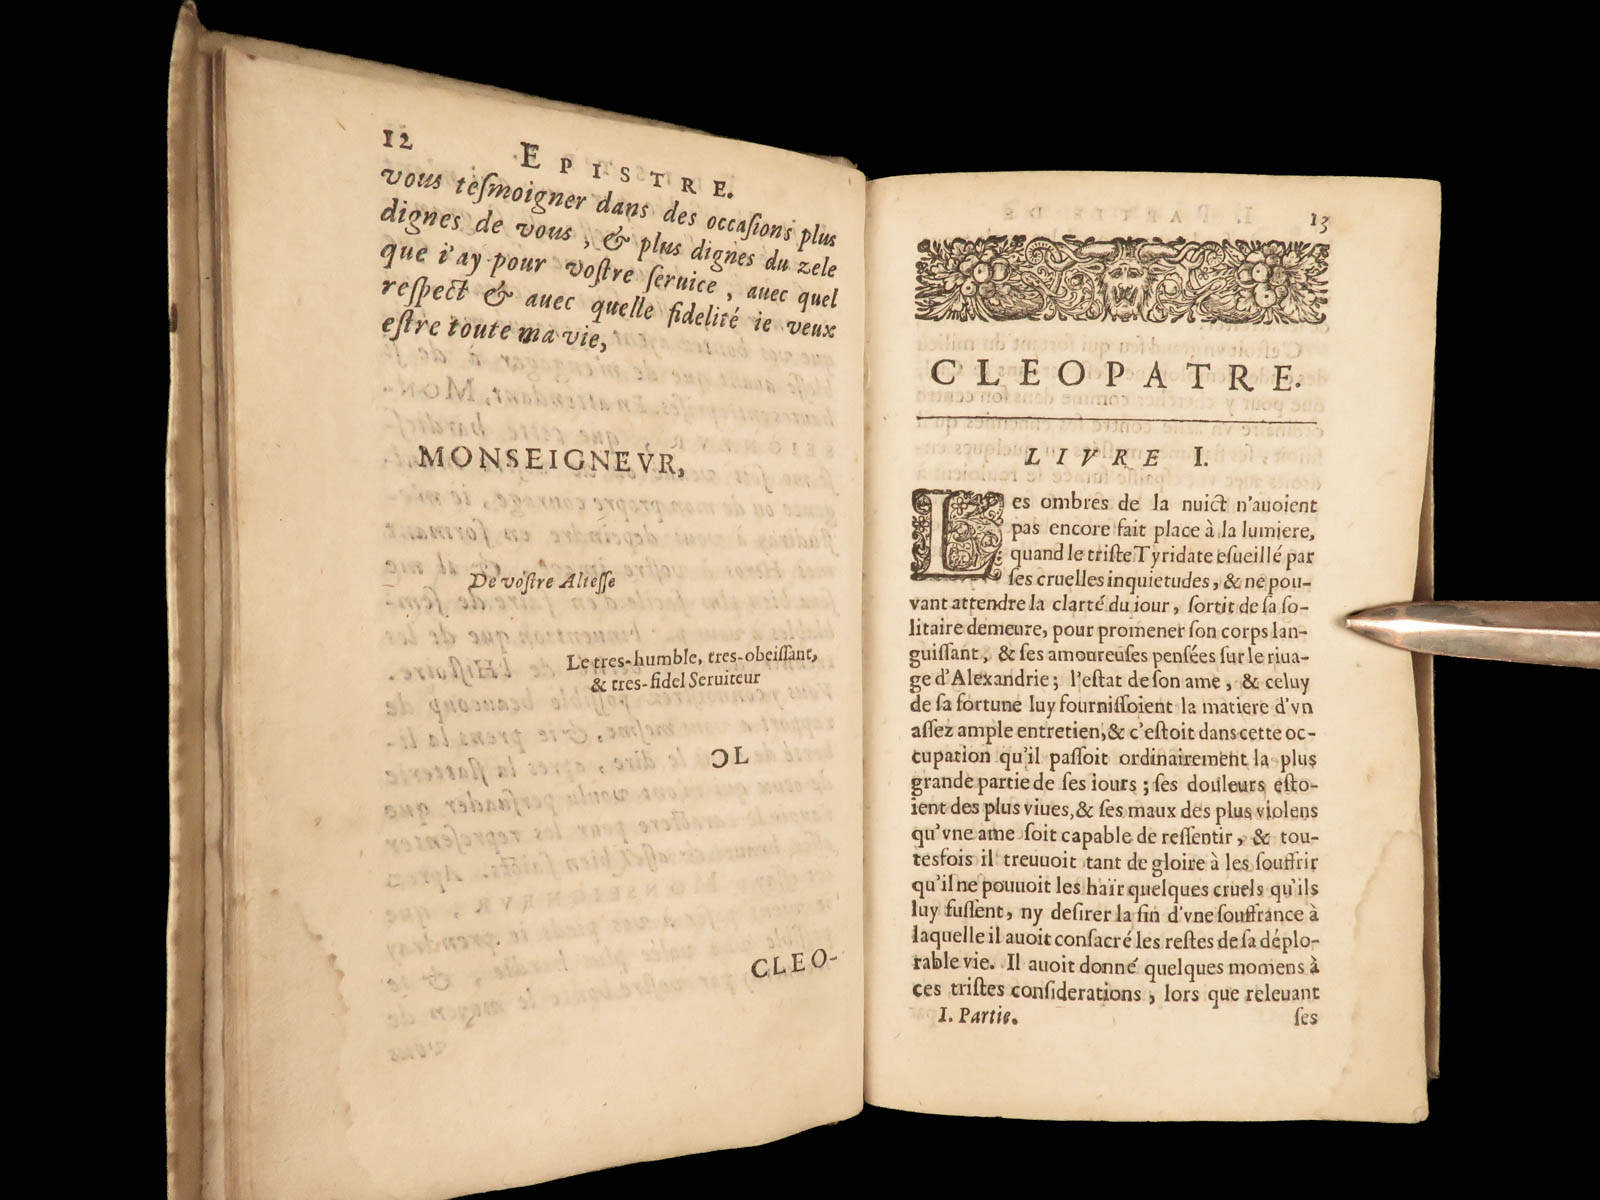 12 EPISTRE.
vous tesmoigner dans des occasions plus
dignes de vous, & plus dignes du zele
que i'ay pour vostre seruice, auec quel
respect & auec quelle fidelité ie veux
estre toute ma vie,
MONSEIGNEVR,
De vostre Altesse
Le tres-humble, tres-obeissant,
& tres-fidel Seruiteur
CLEO-
13
CLEOPATRE.
LIVRE I.
Les ombres de la nuict n'auoient
pas encore fait place à la lumiere,
quand le triste Tyridate esueillé par
ses cruelles inquietudes, & ne pou-
vant attendre la clarté du iour, sortit de sa so-
litaire demeure, pour promener son corps lan-
guissant, & ses amoureuses pensées sur le riua-
ge d'Alexandrie; l'estat de son ame, & celuy
de sa fortune luy fournissoient la matiere d'vn
assez ample entretien, & c'estoit dans cette oc-
cupation qu'il passoit ordinairement la plus
grande partie de ses iours; ses douleurs esto-
ient des plus viues, & ses maux des plus violens
qu'vne ame soit capable de ressentir, & tou-
tesfois il treuuoit tant de gloire à les souffrir
qu'il ne pouuoit les haïr quelques cruels qu'ils
luy fussent, ny desirer la fin d'vne souffrance à
laquelle il auoit consacré les restes de sa déplo-
rable vie. Il auoit donné quelques momens à
ces tristes considerations, lors que releuant
I. Partie. ses